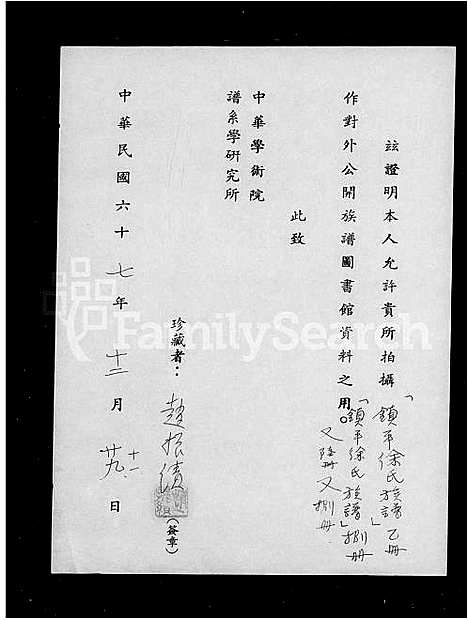 玆證明本人允許貴所拍攝「鎮平徐氏族譜」乙冊
「鎮平徐氏族譜」捌冊
又陸冊又捌冊.
作對外公開族譜圖書館資料之用。
此致
中華學術院
譜系學研究所
珍藏者：趙振績
(簽章)
中華民國六十七年十二月廿九日
十一
FamilySearch